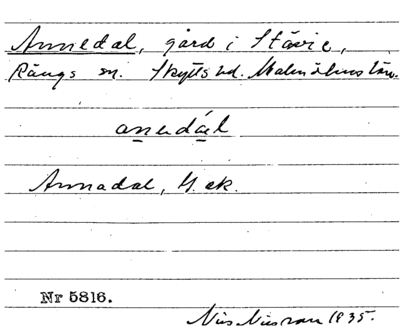 Annedal, gård i Stävie,
Rängs sn. Skytts hd. Malmöhus län.
anedál
Annadal, G. ek.
Nr 5816.
Nils Nilsson 1935.